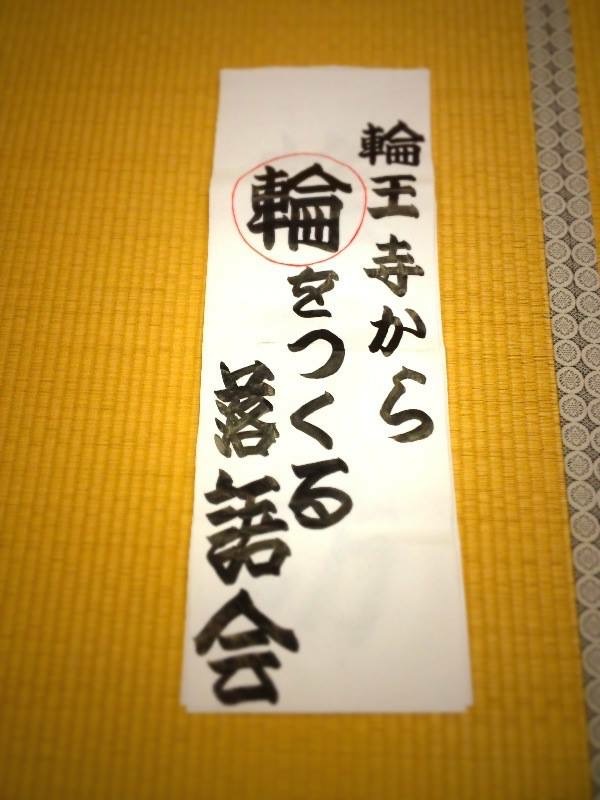 輪王寺から
輪をつくる
落語会